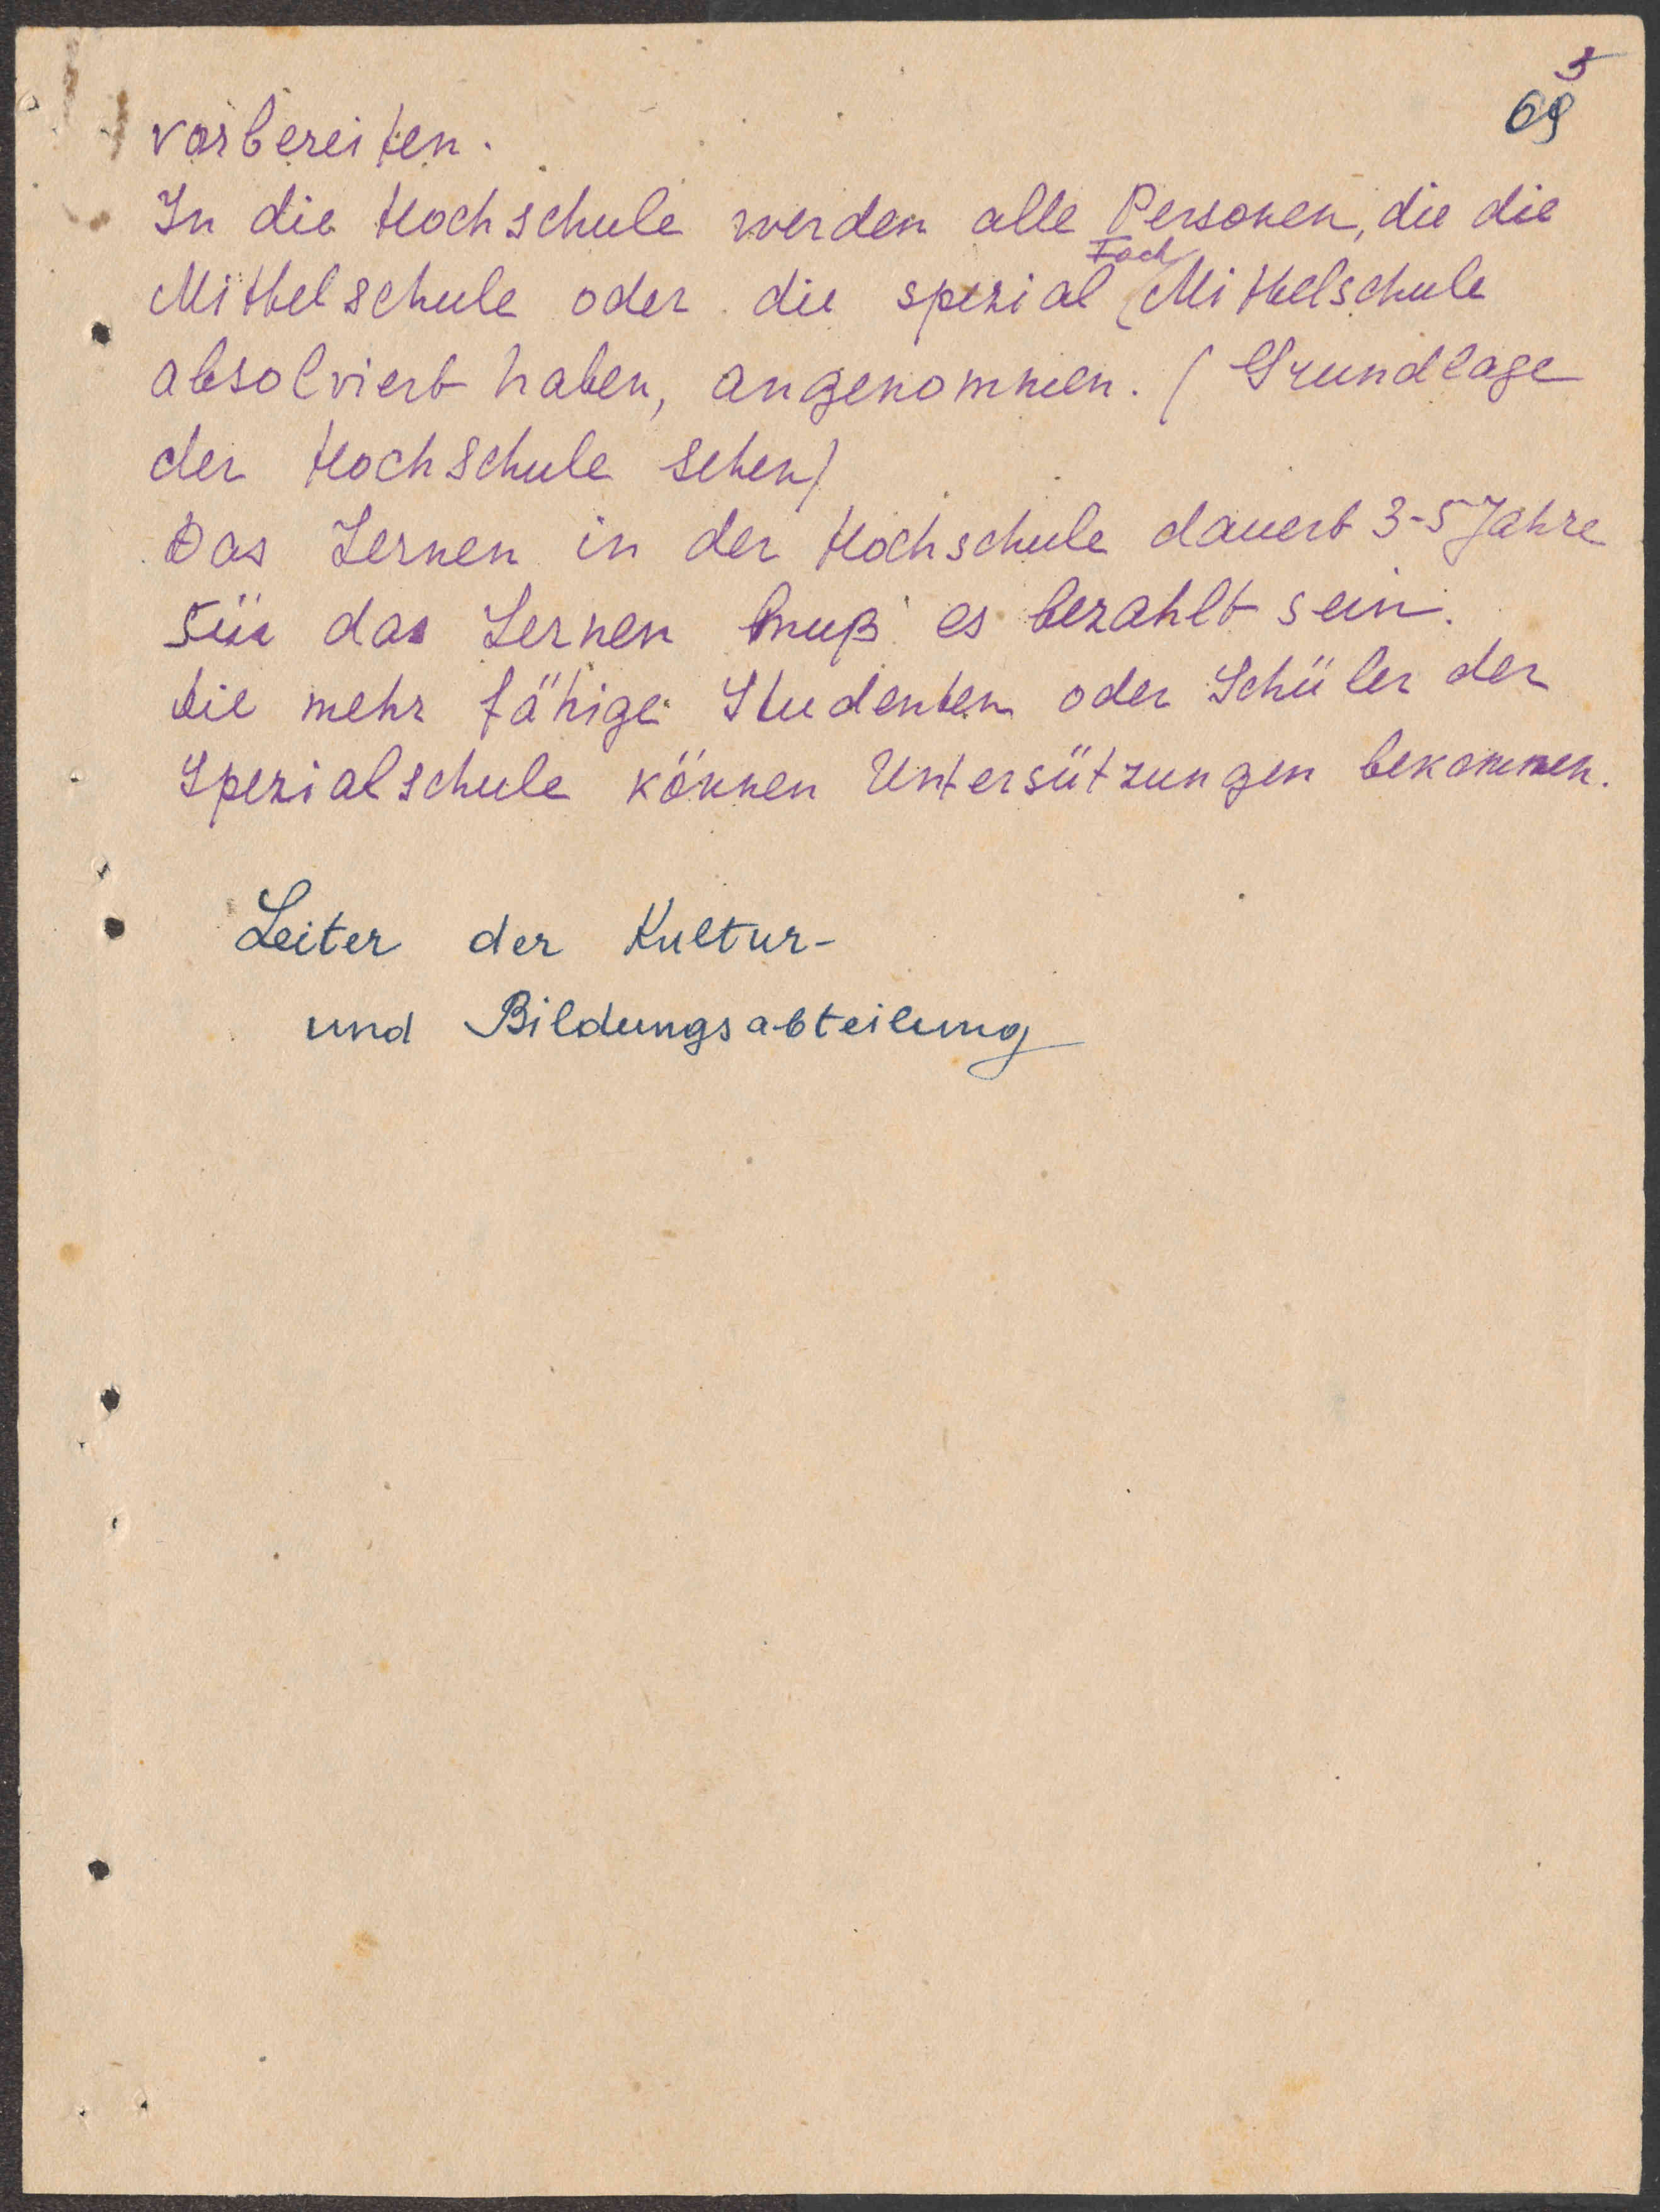 5
69
vorbereiten.
In die Hochschule werden alle Personen, die die
Fach
Mittelschule oder die spezial Mittelschule
absolviert haben, angenommen. (Grundlage
der Hochschule sehen)
Das Lernen in der Hochschule dauert 3-5 Jahre
Für das Lernen muß es bezahlt sein.
Die mehr fähige Studenten oder Schüler der
Spezialschule können Untersützungen bekommen.
Leiter der Kultur-
und Bildungsabteilung